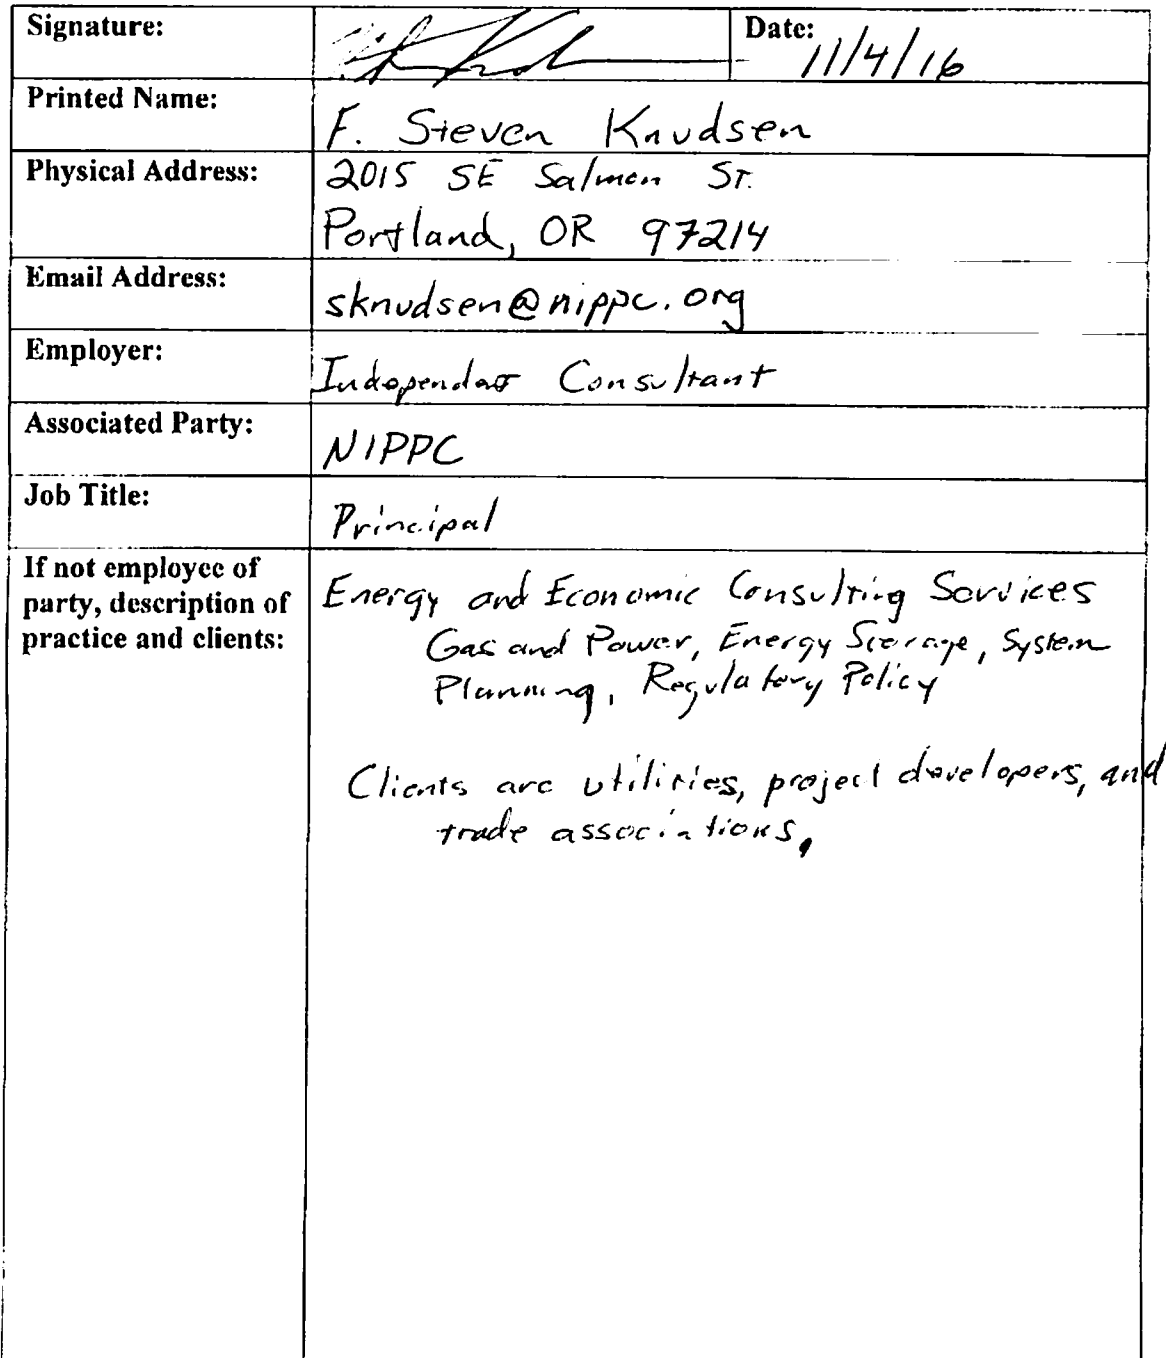 Signature:
Date: 11/4/16
Printed Name: F. Steven Knudsen
Physical Address: 2015 SE Salmon St.
Portland, OR 97214
Email Address: sknudsen@nippc.org
Employer: Independent Consultant
Associated Party: NIPPC
Job Title: Principal
If not employee of
party, description of
practice and clients:
Energy and Economic Consulting Services
Gas and Power, Energy Storage, System
Planning, Regulatory Policy
Clients are utilities, project developers, and
trade associations.